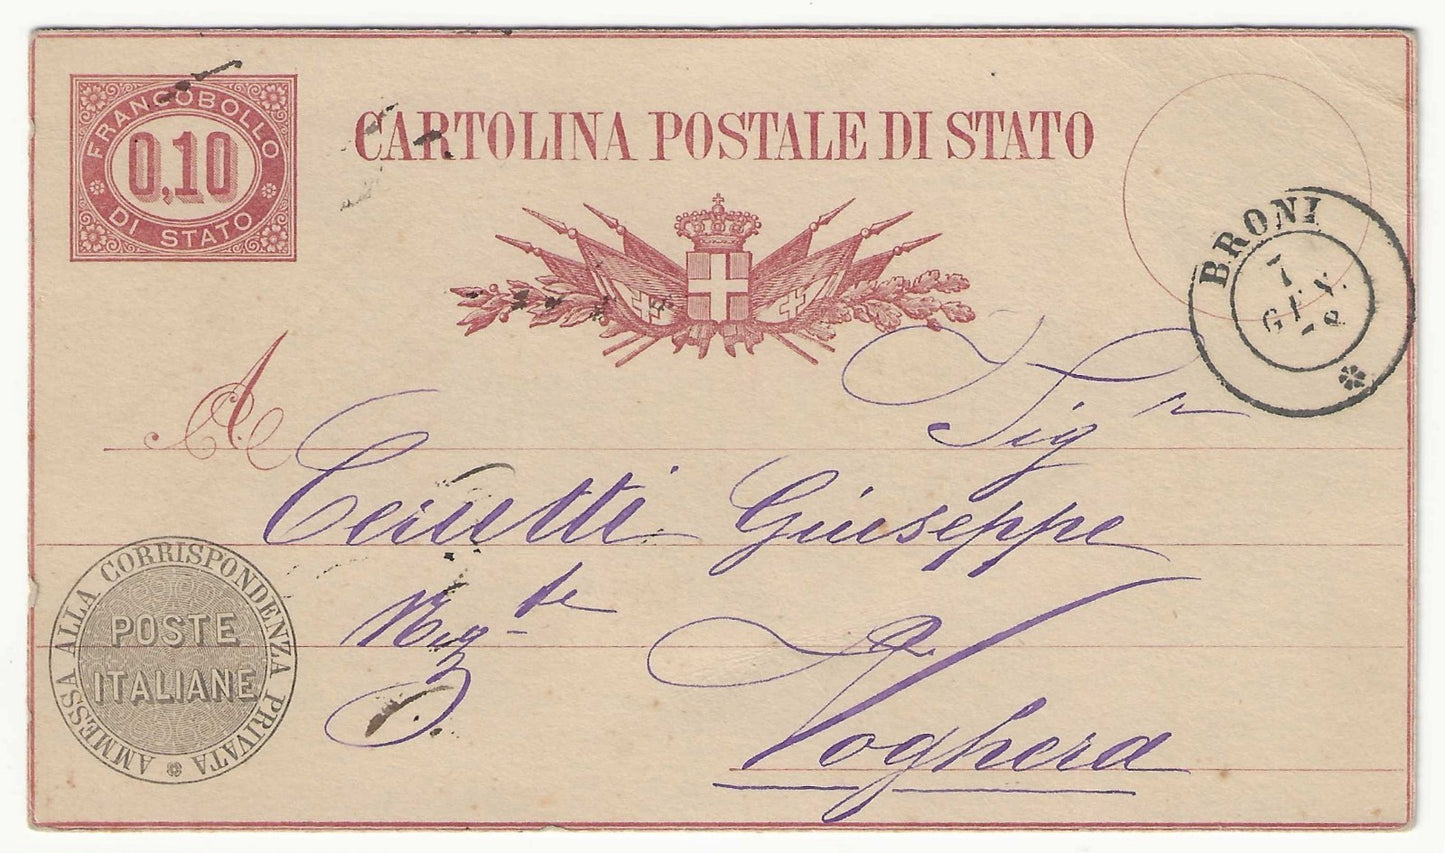 FRANCOBOLLO
0,10
DI STATO
CARTOLINA POSTALE DI STATO
BRONI
7
GEN.
78
A
Sig r
Cerutti Giuseppe
Neg te
Voghera
AMMESSA ALLA CORRISPONDENZA PRIVATA
POSTE
ITALIANE